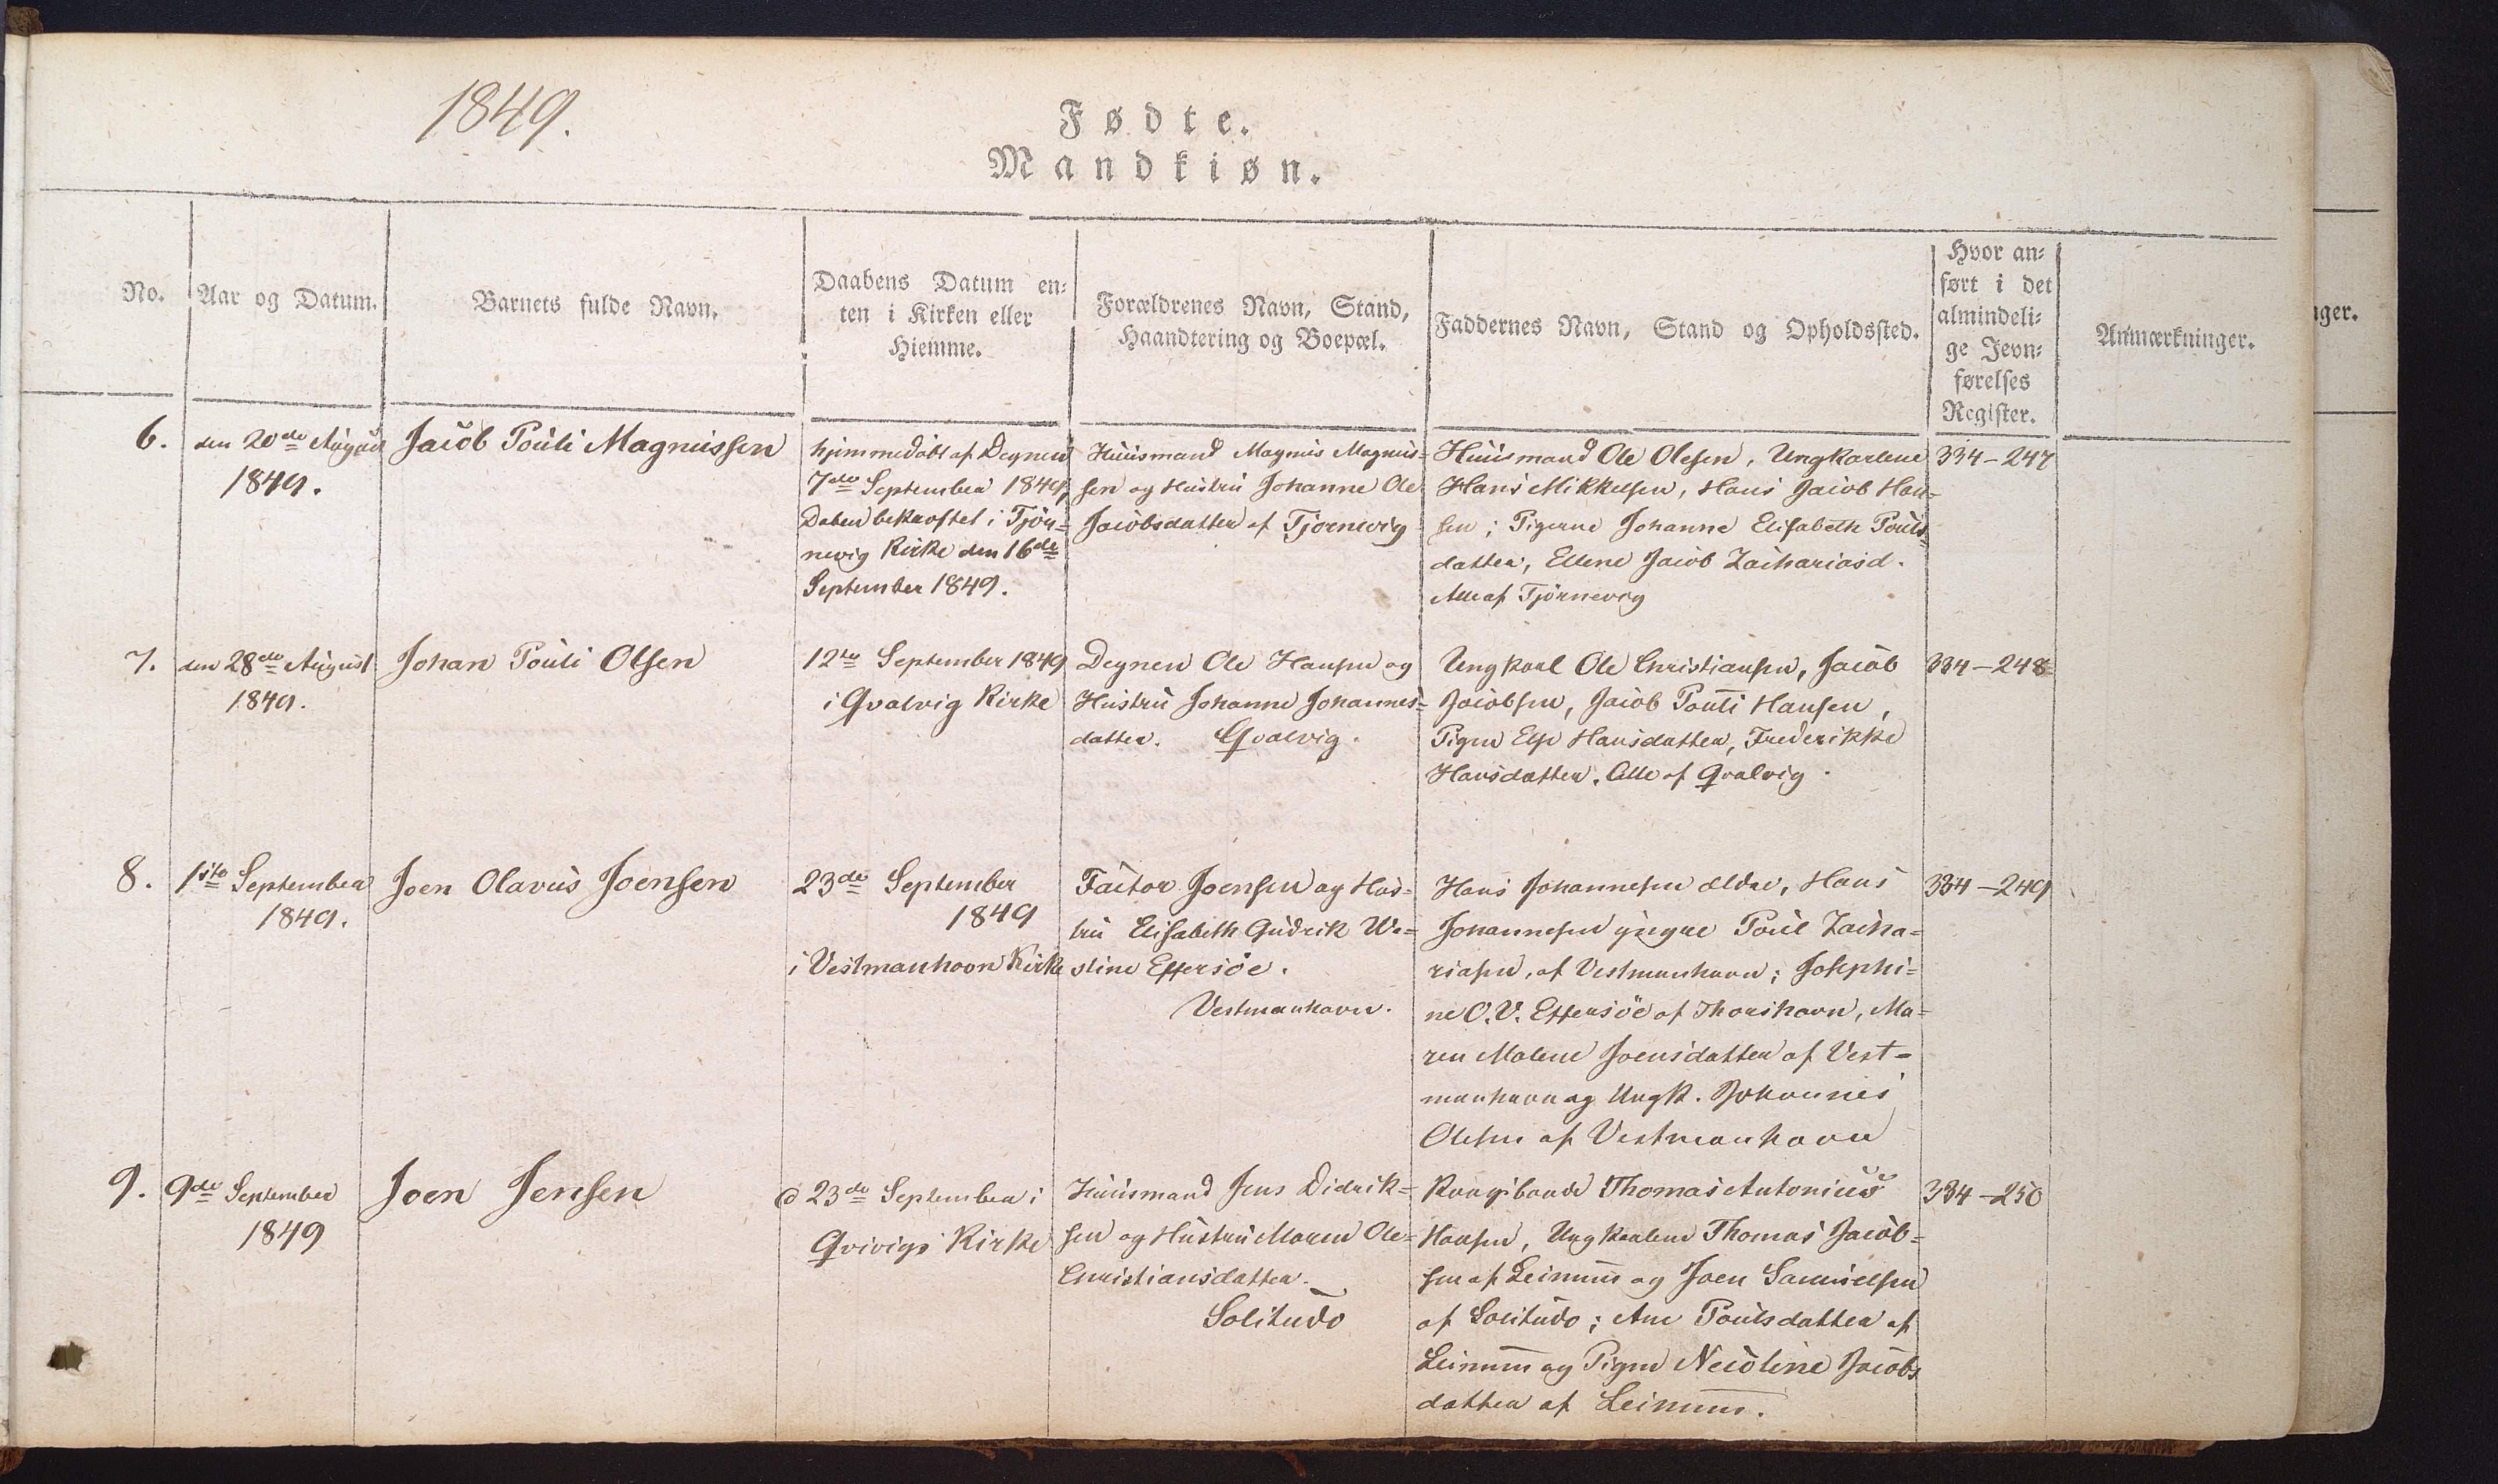 1849.
Fødte.
Mandkiøn.
No.
Aar og Datum.
Barnets fulde Navn.
Daabens Datum en-
ten i Kirken eller
Hiemme.
Forældrenes Navn, Stand,
Haandtering og Boepæl.
Faddernes Navn, Stand og Opholdssted.
Hvor an-
ført i det
almindeli-
ge Jevn-
førelses
Register.
Anmærkninger.
nger.
6.
den 20de August
1849.
Jacob Pouli Magnussen
hjemmedøbt af Degnen
7de September 1849,
Daben bekræftet i Tjør-
nevig Kirke den 16de
September 1849.
Huusmand Magnus Magnus-
sen og Hustru Johanne Ole
Jacobsdatter af Tjørnevig
Huusmand Ole Olesen, Ungkarlene
Hans Mikkelsen, Hans Jacob Han-
sen; Pigerne Johanne Elisabeth Pouls-
datter, Ellene Jacob Zachariasd.
Alle af Tjørnevig
334-247
7.
den 28de August
1849.
Johan Pouli Olsen
12te September 1849
i Qvalvig Kirke
Degnen Ole Hansen og
Hustru Johanne Johannes-
datter. Qvalvig.
Ungkarl Ole Christiansen, Jacob
Jacobsen, Jacob Pouli Hansen,
Pigen Else Hansdatter, Frederikke
Hansdatter. Alle af Qvalvig.
334-248
8.
1ste September
1849.
Joen Olavus Joensen
23de September
1849
i Vestmanhavn Kirke
Factor Joensen og Hus-
tru Elisabeth Gudrik We-
stine Effersöe.
Vestmanhavn.
Hans Johannesen ældre, Hans
Johannesen yngre Poul Zacha-
riasen, af Vestmanhavn; Josephi-
ne O.V. Effersöe af Thorshavn, Ma-
ren Malene Joensdatter af Vest-
manhavn og Ungk. Johannes
Olesen af Vestmanhavn
334-249
9.
9de September
1849
Joen Jensen
d 23de September i
Qvivigs Kirke
Huusmand Jens Didrik-
sen og Hustru Maren Ole-
Christiansdatter.
Solitudo
Kongsbonde Thomas Antonius
Hansen, Ungkarlene Thomas Jacob-
sen af Leinum og Joen Samuelsen
af Solitudo; Ane Poulsdatter af
Leinum og Pigen Nicoline Jacobs
datter af Leinum.
334-250